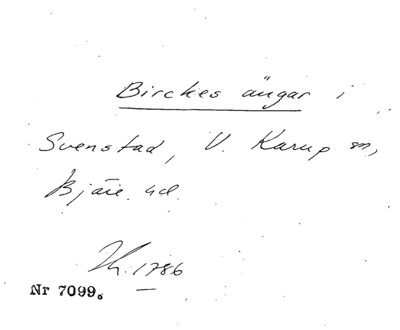 Birckes ängar i
Svenstad, V. Karup sn,
Bjäre hd.
Kh. 1786
Nr 7099.